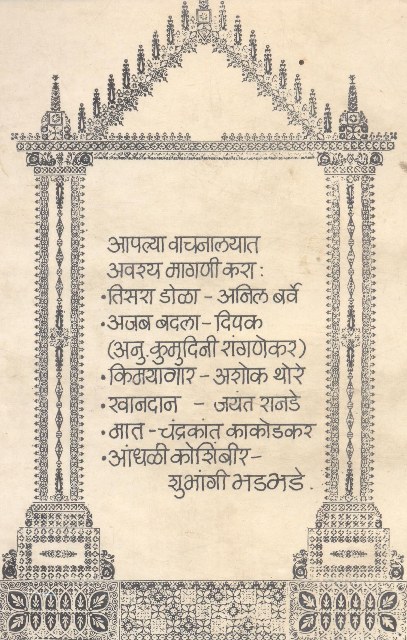 आपल्या वाचनालयात
अवश्य मागणी करा :
•तिसरा डोळा – अनिल बर्वे
•अजब बदला – दिपक
(अनु. कुमुदिनी रांगणेकर)
•किमयागार – अशोक थोरे
•खानदान – जयंत रानडे
•मात – चंद्रकांत काकोडकर
•आंधळी कोशिंबीर –
शुभांगी भडभडे .